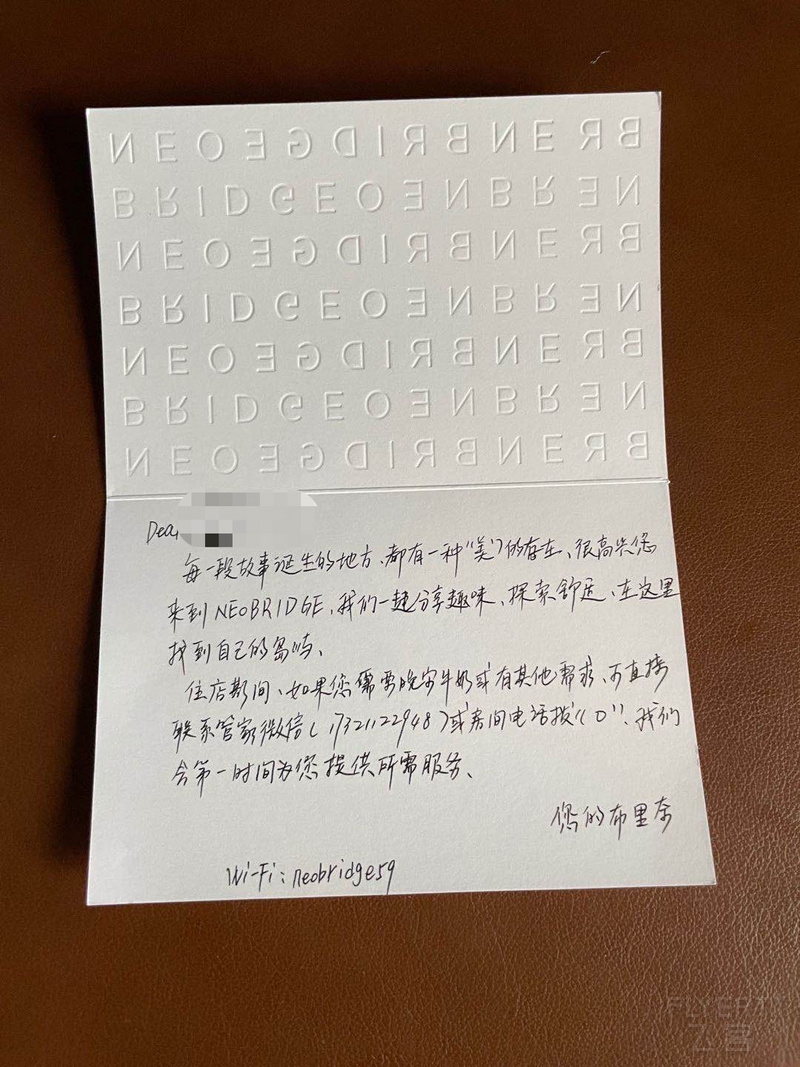 N E O E G D I R B N E R B
B R I D G E O E N B R E N
N E O E G D I R B N E R B
B R I D G E O E N B R E N
N E O E G D I R B N E R B
B R I D G E O E N B R E N
N E O E G D I R B N E R B
Dear
每一段故事诞生的地方、都有一种“美”的存在、很高兴您
来到NEOBRIDGE、我们一起分享趣味、探索舒适、在这里
找到自己的岛屿、
住店期间、如果您需要晚安牛奶或有其他需求、可直接
联系管家微信(17321122948)或房间电话拨“0”、我们
会第一时间为您提供所需服务、
您的布里奈
Wi-Fi: neobridge59
FLYERT
飞客